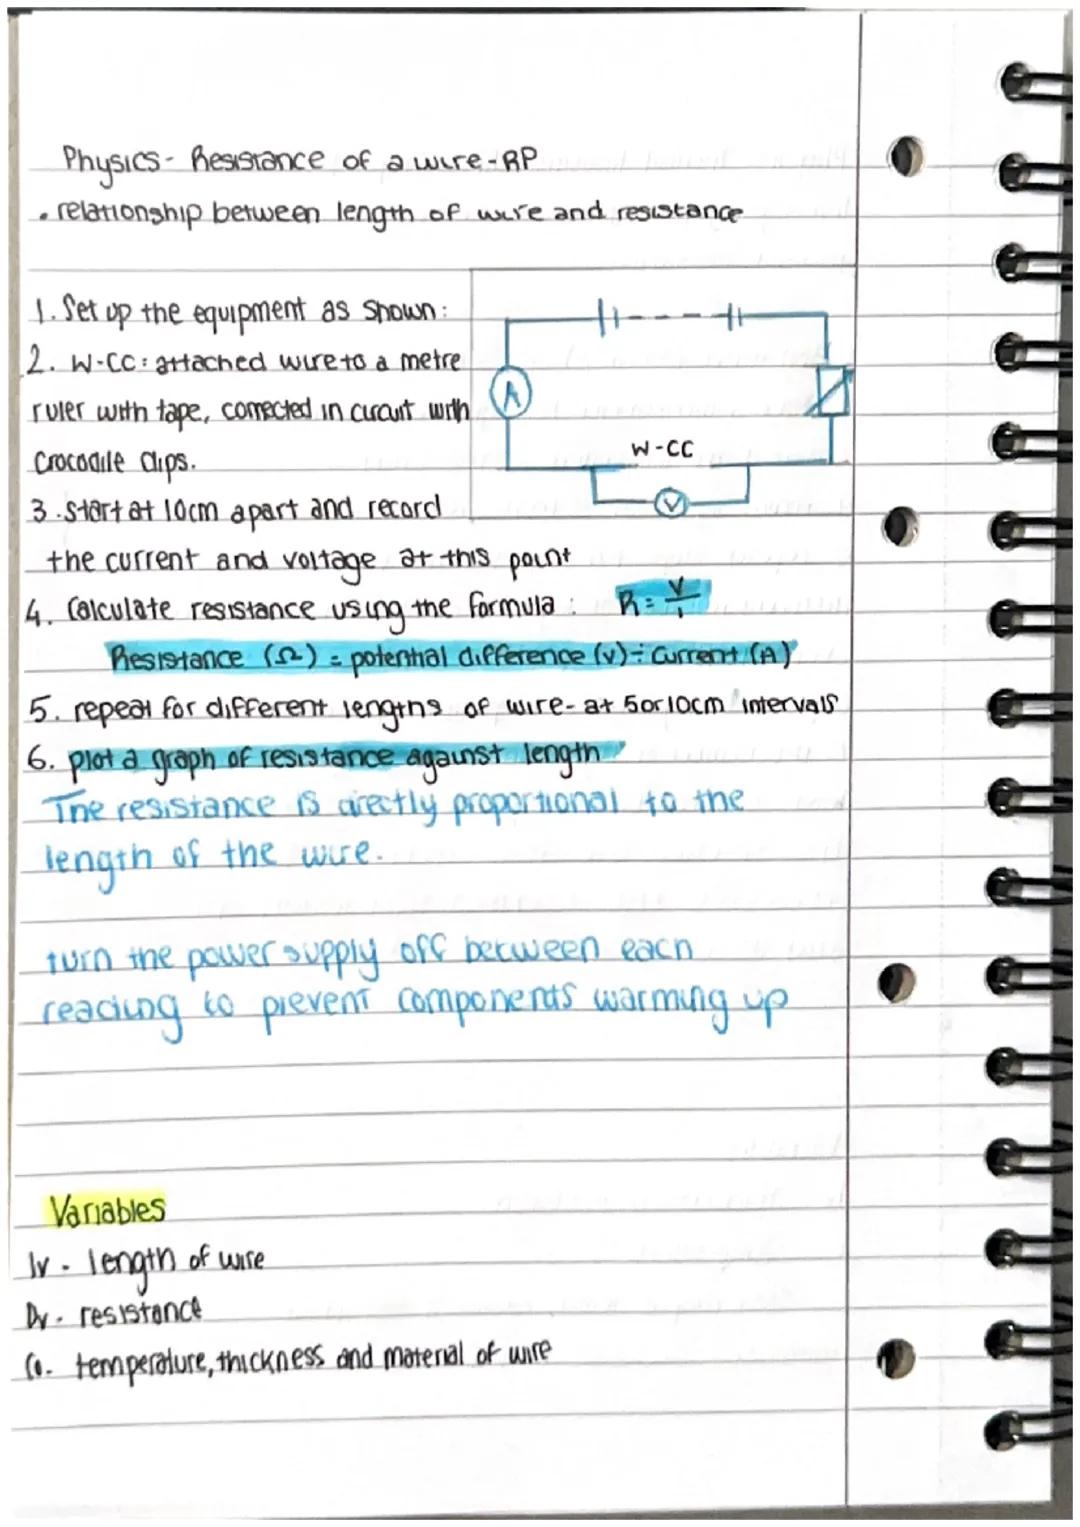 Physics - Resistance of a wire - RP
• relationship between length of wire and resistance
1. Set up the equipment as shown:
2. W-CC: attached wire to a metre
ruler with tape, connected in circuit with
crocodile clips.
A
W-CC
V
3. start at 10cm apart and record
the current and voltage at this point
4. Calculate resistance using the formula: R = V/I
Resistance (Ω) = potential difference (V) ÷ Current (A)
5. repeat for different lengths of wire - at 5 or 10cm intervals
6. plot a graph of resistance against length
The resistance is directly proportional to the
length of the wire.
turn the power supply off between each
reading to prevent components warming up
Variables
Iv - length of wire
Dv - resistance
Co - temperature, thickness and material of wire